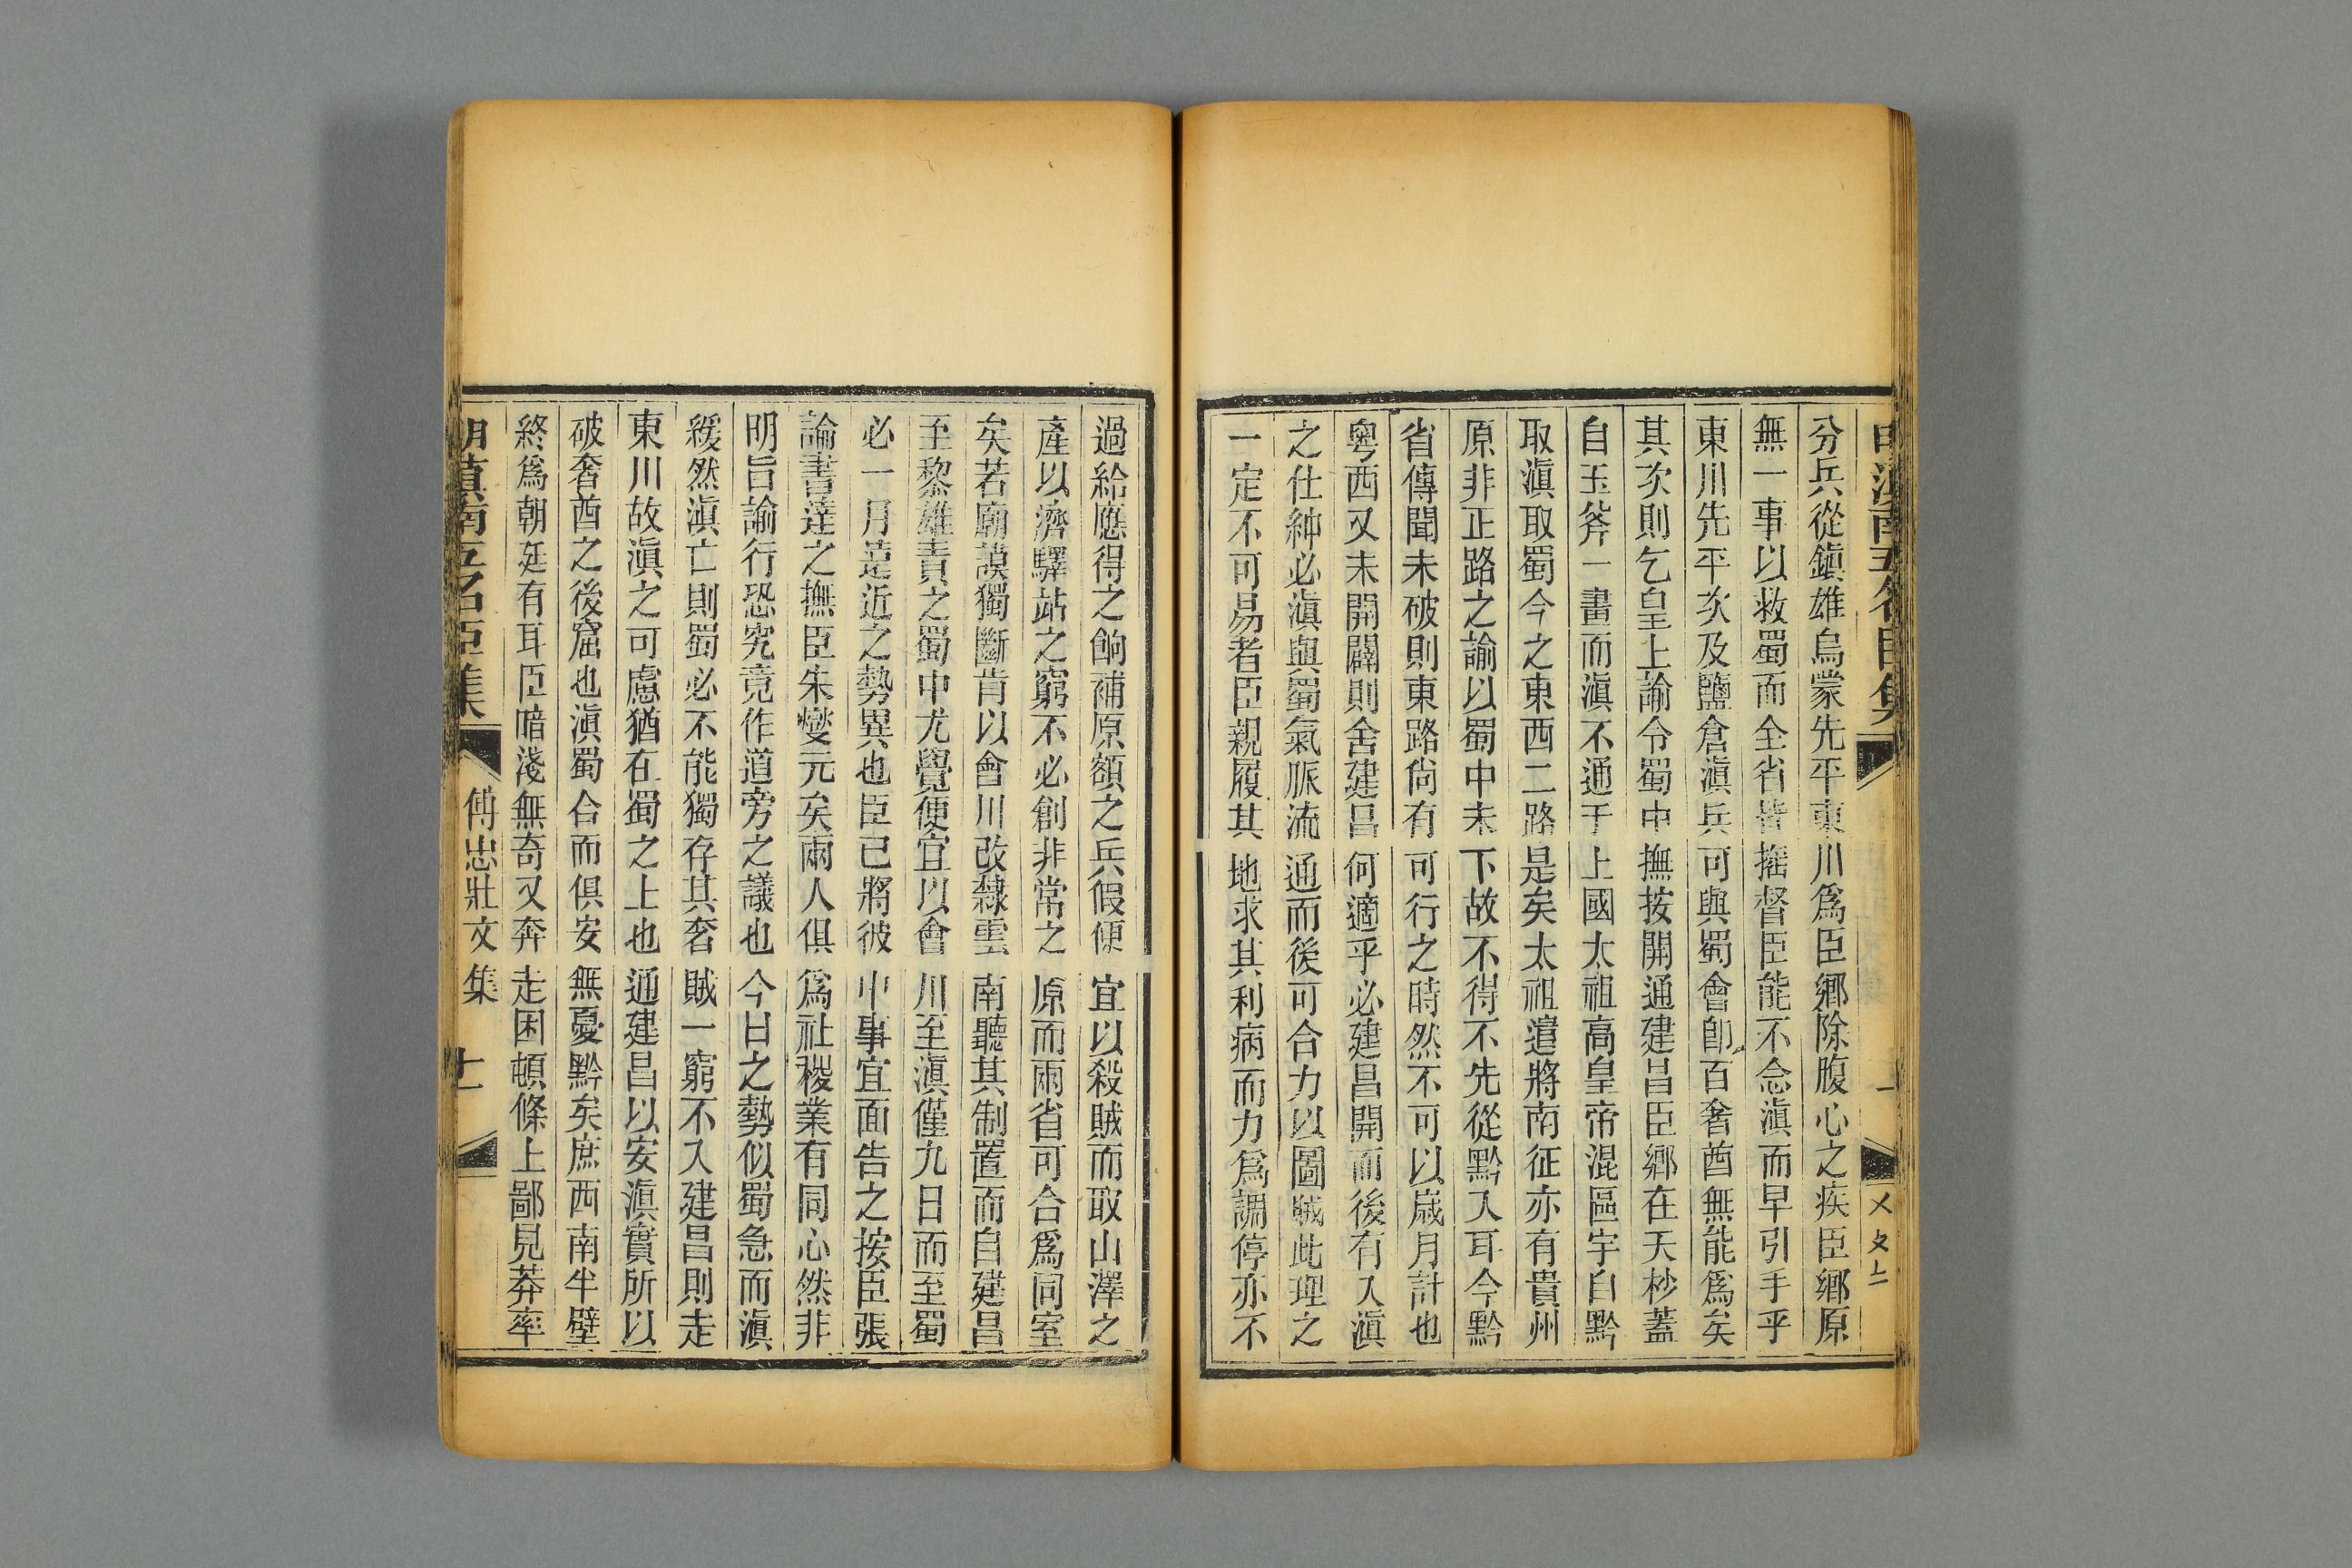 分兵從鎮雄烏蒙先平東川爲臣鄉除腹心之疾臣鄉原
無一事以救蜀而全省皆摧督臣能不念滇而早引手乎
東川先平次及鹽倉滇兵可與蜀會卽百奢酋無能爲矣
其次則乞皇上諭令蜀中撫按開通建昌臣鄉在天杪蓋
自玉斧一畫而滇不通于上國太祖高皇帝混區宇自黔
取滇取蜀今之東西二路是矣太祖遣將南征亦有貴州
原非正路之諭以蜀中未下故不得不先從黔入耳今黔
省傳聞未破則東路尙有可行之時然不可以歲月計也
粵西又未開闢則舍建昌何適乎必建昌開而後有入滇
之仕紳必滇與蜀氣脈流通而後可合力以圖賊此理之
一定不可易者臣親履其地求其利病而力爲調停亦不
過給應得之餉補原額之兵假便宜以殺賊而取山澤之
產以濟驛站之窮不必創非常之原而兩省可合爲同室
矣若廟謨獨斷肯以會川改隸雲南聽其制置而自建昌
至黎雄責之蜀中尤覺便宜以會川至滇僅九日而至蜀
必一月遠近之勢異也臣已將彼中事宜面告之按臣張
論書達之撫臣朱燮元矣兩人俱爲社稷業有同心然非
明旨諭行恐究竟作道旁之議也今日之勢似蜀急而滇
緩然滇亡則蜀必不能獨存其奢賊一窮不入建昌則走
東川故滇之可慮猶在蜀之上也通建昌以安滇實所以
破奢酋之後窟也滇蜀合而俱安無憂黔矣庶西南半壁
終爲朝廷有耳臣暗淺無奇又奔走困頓條上鄙見莽率
明滇南五名臣集 傅忠壯文集 十一